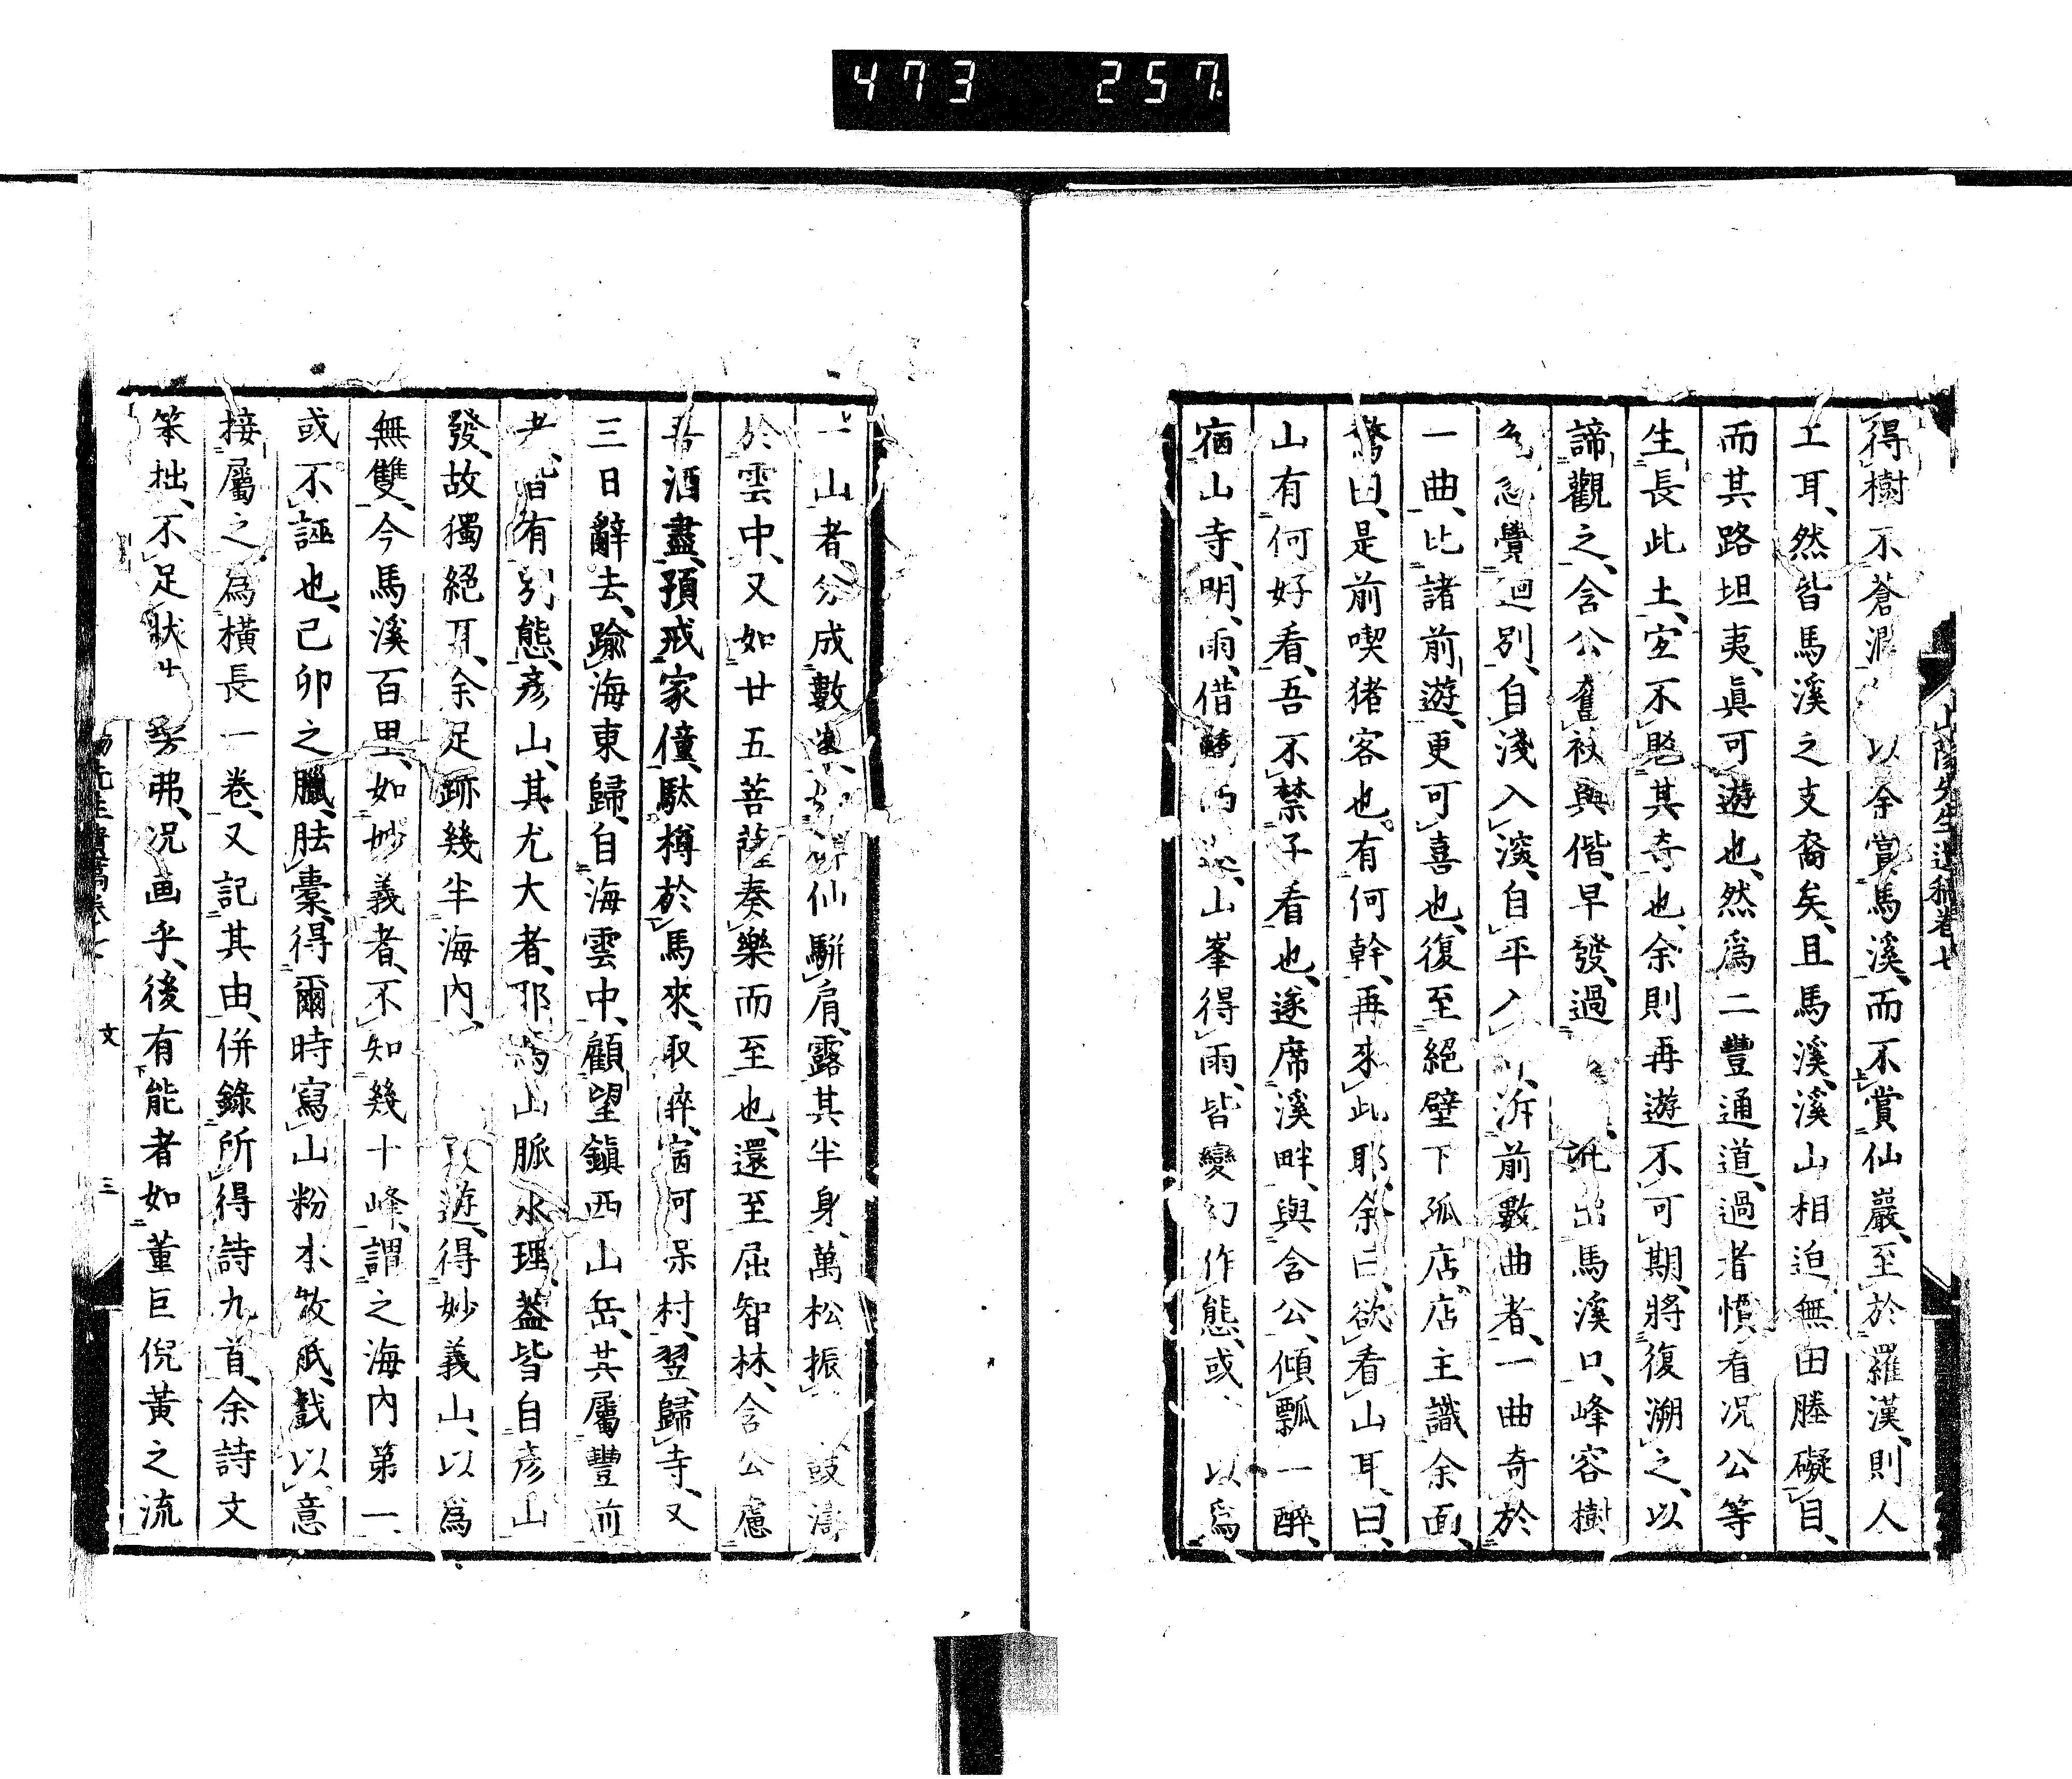 473 257
山陽先生遺稿卷七
得樹不蒼潤以余賞馬溪、而不賞仙巖、至於羅漢、則人
工耳、然皆馬溪之支裔矣、且馬溪、溪山相迫無田塍礙目、
而其路坦夷、眞可遊也、然爲二豐通道、過者慣看况公等
生長此土、宜不覺其奇也、余則再遊不可期、將復溯之、以
諦觀之、含公奮袂與偕、早發、過出馬溪口、峰容樹
色忽覺迥別、自淺入深、自平入泝前數曲者、一曲奇於
一曲、比諸前遊、更可喜也、復至絕壁下孤店、店主識余面、
驚曰、是前喫猪客也。有何幹、再來此耶、余曰、欲看山耳、曰、
山有何好看、吾不禁子看也、遂席溪畔、與含公、傾瓢一醉、
宿山寺、明、雨、借山峯得雨、皆變幻作態、或以爲
一山者、分成數仙駢肩、露其半身、萬松振鼓濤
於雲中、又如廿五菩薩奏樂而至也、還至屈智林、含公慮
吾酒盡、預戒家僮、馱樽於馬來、取醉、宿河呆村、翌、歸寺、又
三日辭去、踰海東歸、自海雲中、顧望鎭西山岳、其屬豐前
者、皆有別態、彥山、其尤大者、耶馬山脈水理、蓋皆自彥山
發、故獨絕耳、余足跡幾半海內、遊、得妙義山、以爲
無雙、今馬溪百里、如妙義者、不知幾十峰、謂之海內第一、
或不誣也、己卯之臘、胠槖、得爾時寫山粉本敗紙、戲以意
接屬之、爲橫長一卷、又記其由、併錄所得詩九首、余詩文
笨拙、不足狀髣弗、况画乎、後有能者如董巨倪黃之流
先生遺稿卷七 文 三